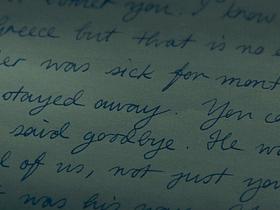 you. I know
Greece but that is no e
er was sick for mont
stayed away. You co
said goodbye. He wa
l of us, not just you
was his way